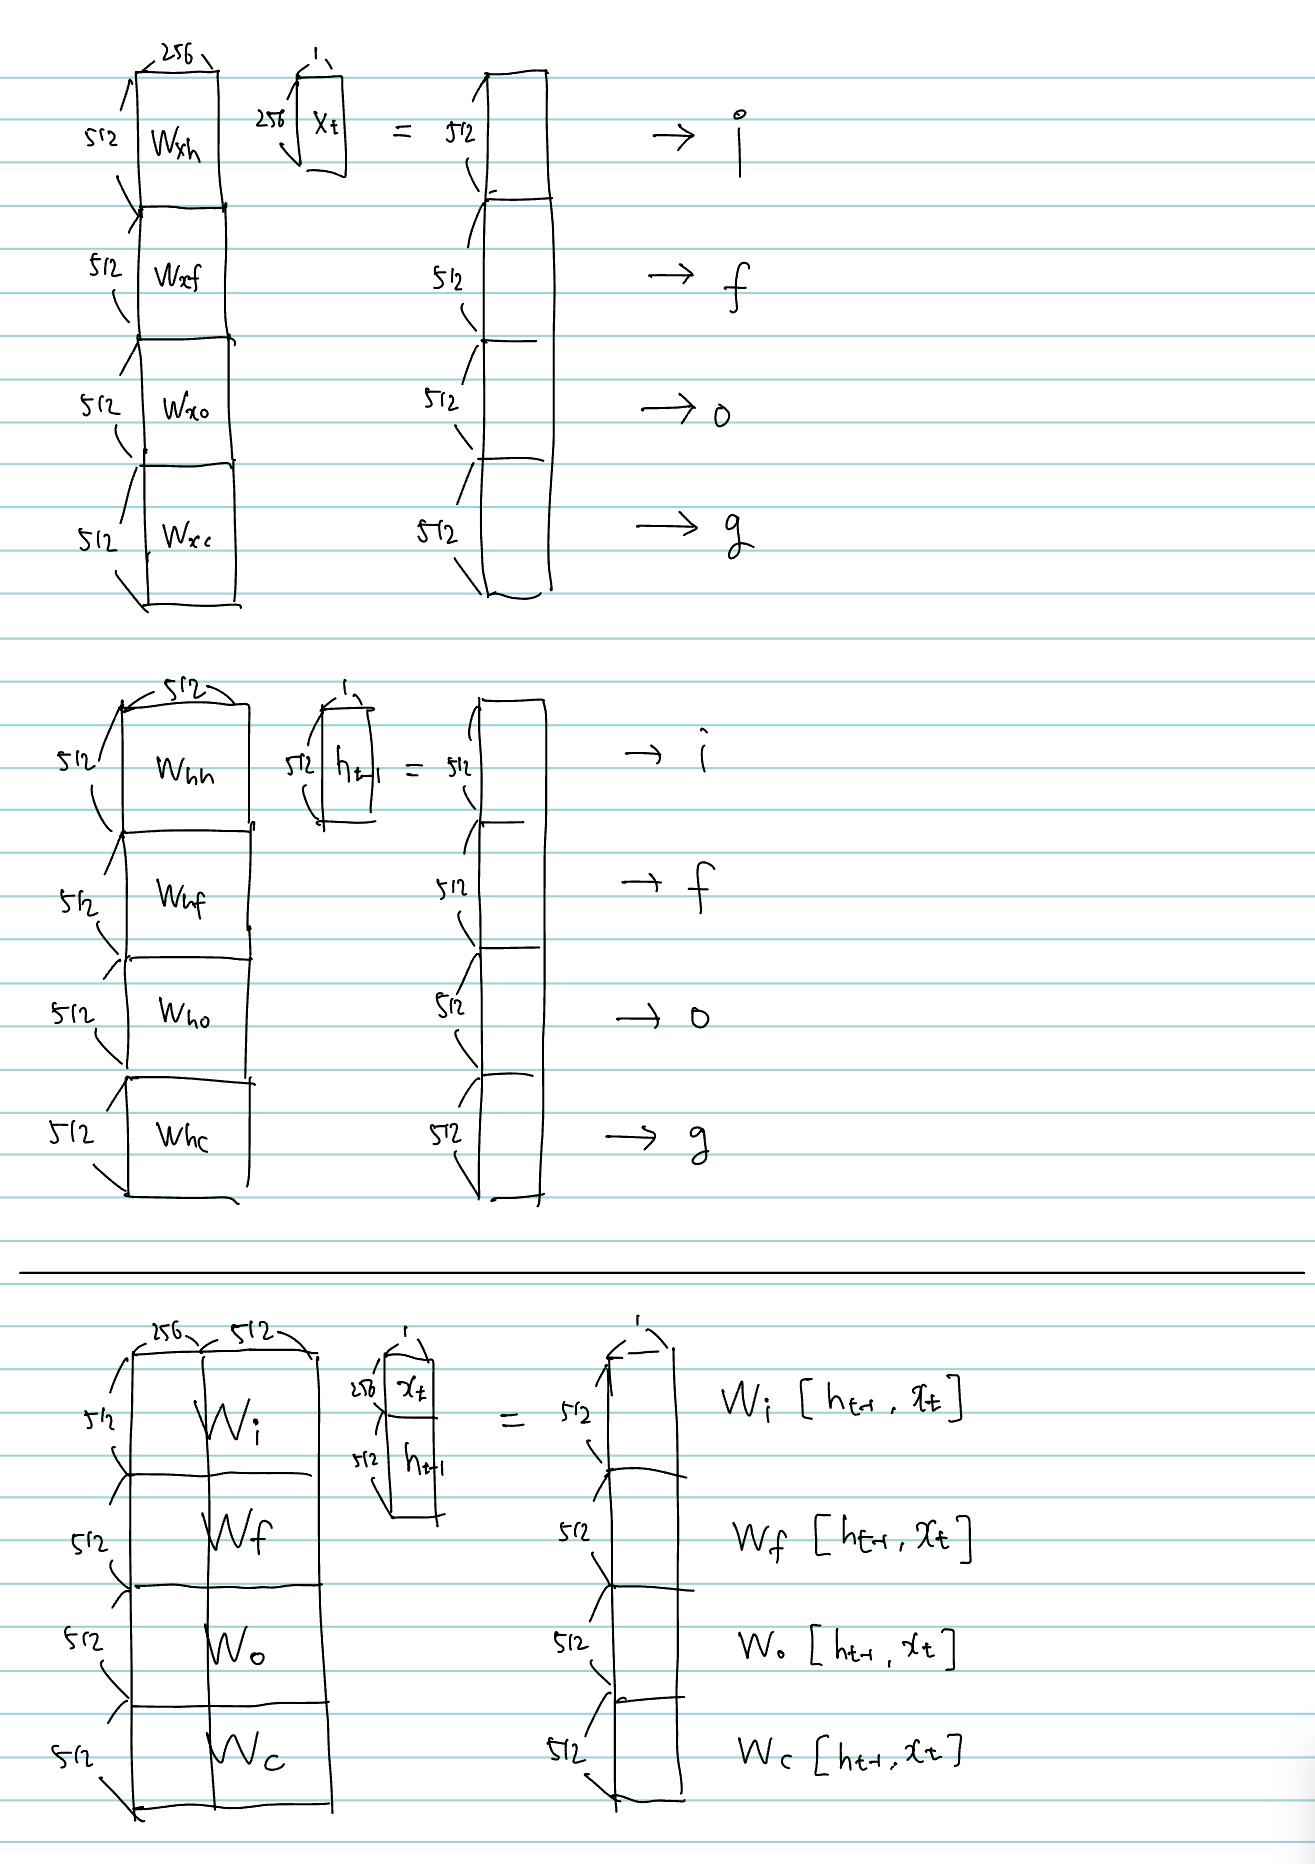 256 1
512 Wxh 256 xt = 512 → i
512 Wxf 512 → f
512 Wxo 512 → o
512 Wxc 512 → g
512 1
512 Whh 512 ht-1 = 512 → i
512 Whf 512 → f
512 Who 512 → o
512 Whc 512 → g
256 512 1 1
512 Wi 256 xt = 512 Wi [ht-1, xt]
512 ht-1
512 Wf 512 Wf [ht-1, xt]
512 Wo 512 Wo [ht-1, xt]
512 Wc 512 Wc [ht-1, xt]